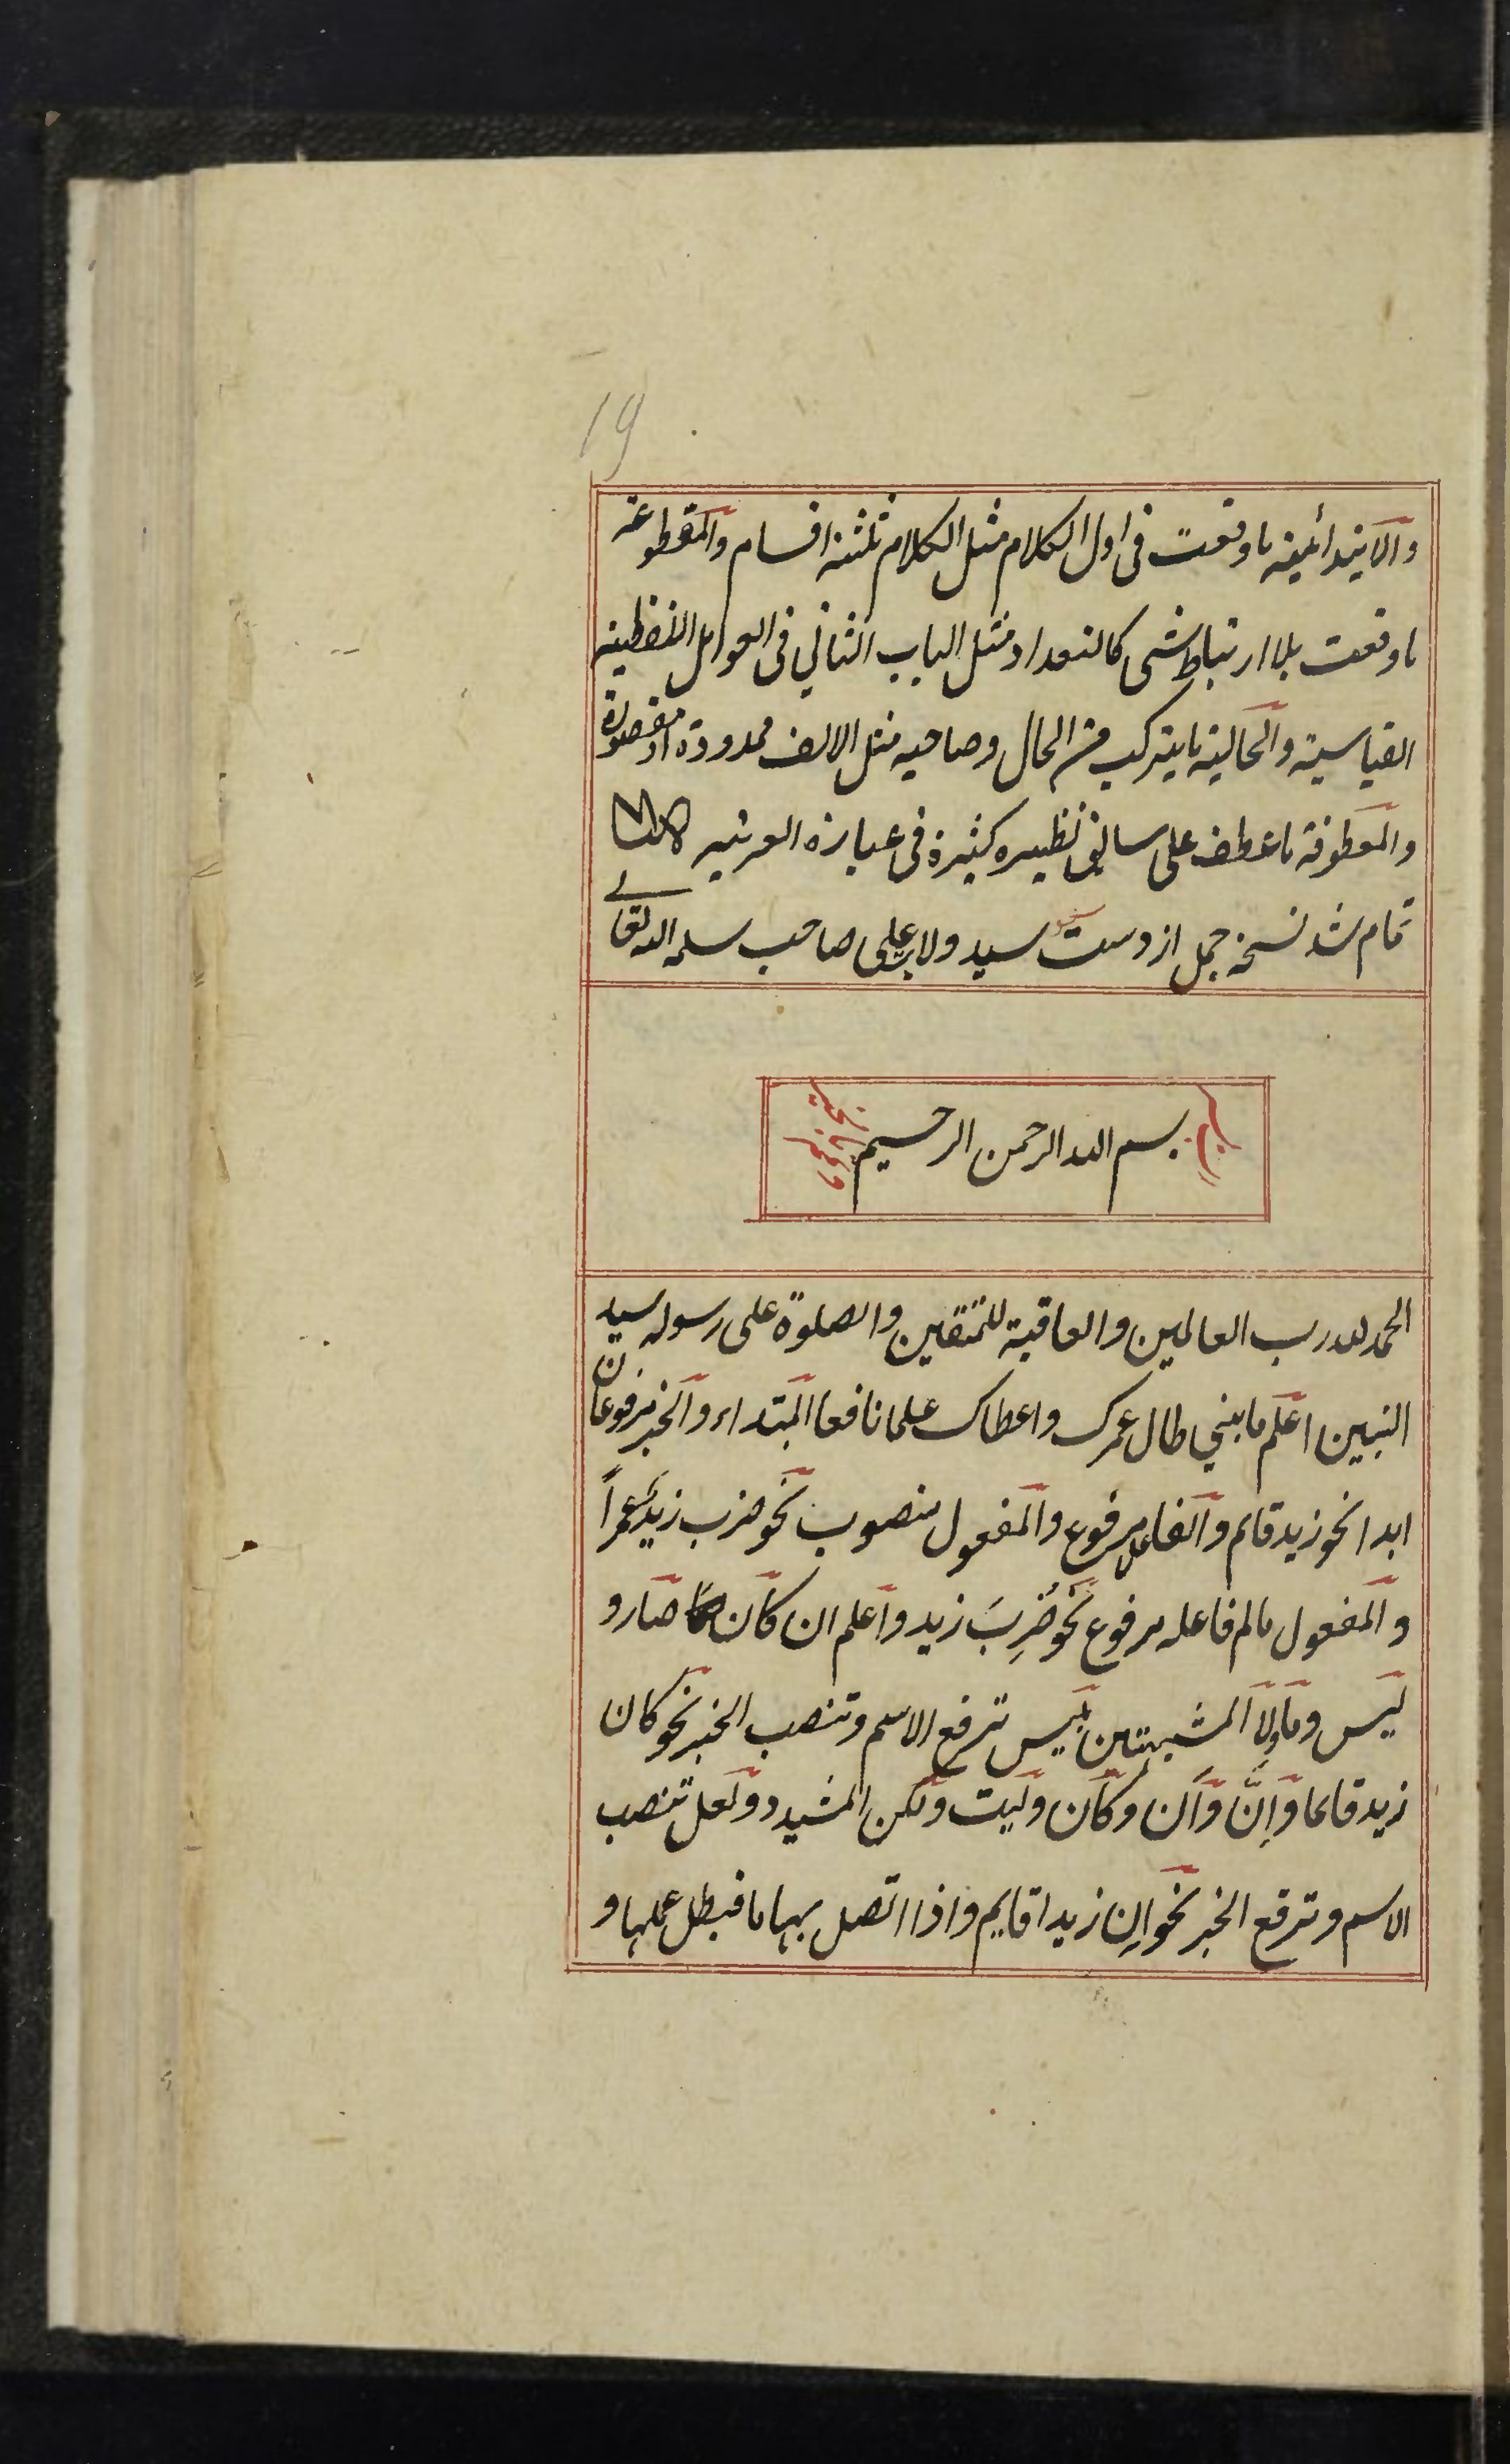 19
والابتدائیة ما وقعت فی اول الکلام مثل الکلام ثلثة اقسام والمقطوعة
ما وقعت بلا ارتباط شی کالتعداد مثل الباب الثانی فی العوامل اللفظیة
القیاسیة والحالیة ما یترکب من الحال وصاحبه مثل الالف ممدودة او مقصورة
والمعطوفة ما عطف علی سابق نظیره کثیرة فی عبارة العربیه
تمام شد نسخه جمل از دست سید ولایت علی صاحب سلمه الله تعالی
بسم الله الرحمن الرحیم
الحمد لله رب العالمین والعاقبة للمتقین والصلوة علی رسوله سید
النبین اعلم یا بنی طال عمرک واعطاک علما نافعا المبتداء والخبر مرفوعان
ابدا نحو زید قائم والفاعل مرفوع والمفعول منصوب نحو ضرب زیدٌ عمراً
والمفعول مالم فاعله مرفوع نحو ضُرِبَ زید واعلم ان کان صار و
لیس وما ولا المشبهتین بلیس ترفع الاسم وتنصب الخبر نحو کان
زید قائما وإنَّ وأن وکأن ولیت ولکن المشدد ولعل تنصب
الاسم وترفع الخبر نحو اِن زیدا قایم واذا اتصل بها ما فبطل عملها و